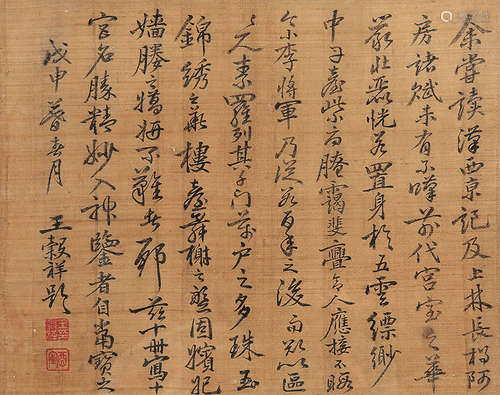 余嘗讀漢西京記及上林長楊阿
房諸賦未有不嘆前代宮室之華
嚴壯麗恍若置身於五雲縹緲
中丹臺紫府腌靄斐亹令人應接不暇
李將軍乃從百年之後而欲以區
々人素羅列其千門萬户之多珠玉
錦綉之樓臺舞榭之態固嬪妃
嬙媵之嬌妍不難耶茲十册寫十
宮名勝精妙入神鑒者自當寶之
戊申暮春月 王穀祥題